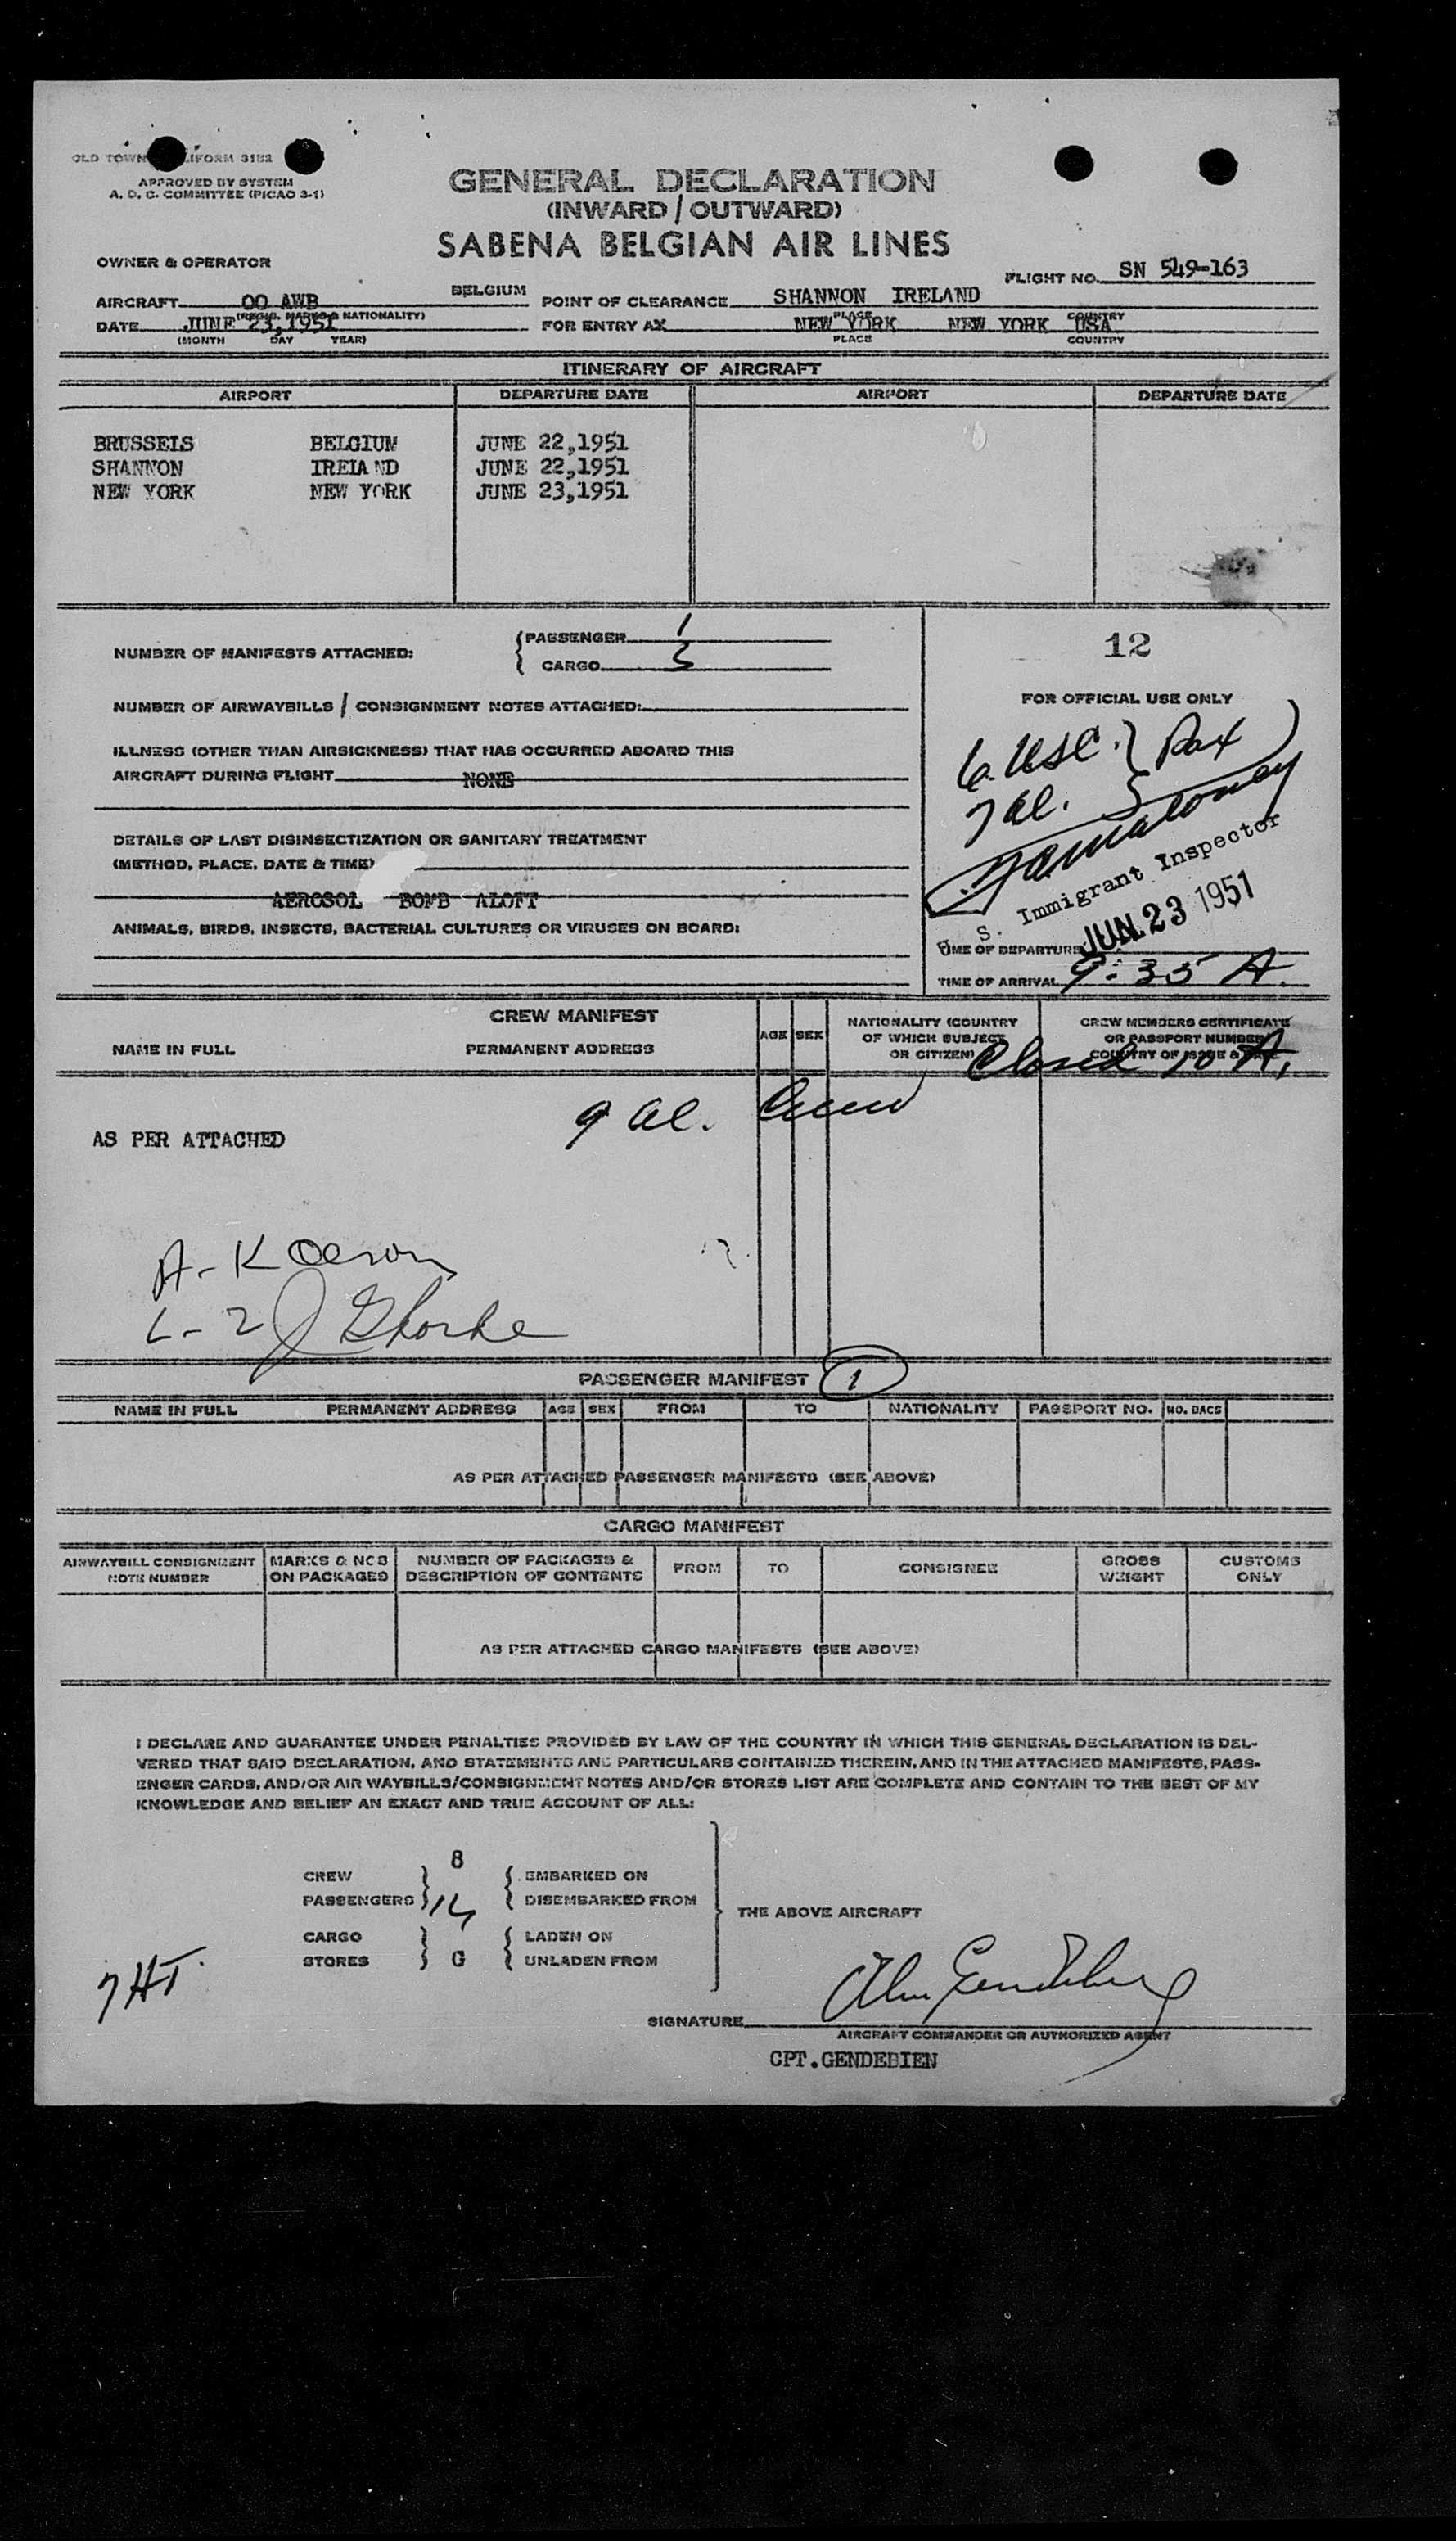 OLD TOWN UNIFORM 3152
APPROVED BY SYSTEM
A. D. C. COMMITTEE (PICAO 3-1)
GENERAL DECLARATION
(INWARD / OUTWARD)
SABENA BELGIAN AIR LINES
OWNER & OPERATOR
FLIGHT NO. SN 549-163
AIRCRAFT OO AWB BELGIUM POINT OF CLEARANCE SHANNON IRELAND
(REGIS. MARKS & NATIONALITY) PLACE COUNTRY
DATE JUNE 23,1951 FOR ENTRY AX NEW YORK NEW YORK USA
(MONTH DAY YEAR) PLACE COUNTRY
ITINERARY OF AIRCRAFT
AIRPORT DEPARTURE DATE AIRPORT DEPARTURE DATE
BRUSSELS BELGIUM JUNE 22,1951
SHANNON IRELAND JUNE 22,1951
NEW YORK NEW YORK JUNE 23,1951
NUMBER OF MANIFESTS ATTACHED: PASSENGER 1
CARGO 3
12
NUMBER OF AIRWAYBILLS / CONSIGNMENT NOTES ATTACHED:
FOR OFFICIAL USE ONLY
ILLNESS (OTHER THAN AIRSICKNESS) THAT HAS OCCURRED ABOARD THIS
AIRCRAFT DURING FLIGHT NONE
6. USC. } Pax
7 al.
DETAILS OF LAST DISINSECTIZATION OR SANITARY TREATMENT
(METHOD, PLACE, DATE & TIME)
AEROSOL BOMB ALOFT
U. S. Immigrant Inspector
JUN 23 1951
ANIMALS, BIRDS, INSECTS, BACTERIAL CULTURES OR VIRUSES ON BOARD:
TIME OF DEPARTURE
TIME OF ARRIVAL 9:35 A.
CREW MANIFEST
NAME IN FULL PERMANENT ADDRESS AGE SEX NATIONALITY (COUNTRY OF WHICH SUBJECT OR CITIZEN) CREW MEMBERS CERTIFICATE OR PASSPORT NUMBER COUNTRY OF ISSUE & DATE
Closed 10 A.
9 al. Crew
AS PER ATTACHED
PASSENGER MANIFEST 1
NAME IN FULL PERMANENT ADDRESS AGE SEX FROM TO NATIONALITY PASSPORT NO. NO. BAGS
AS PER ATTACHED PASSENGER MANIFESTS (SEE ABOVE)
CARGO MANIFEST
AIRWAYBILL CONSIGNMENT NOTE NUMBER MARKS & NOS ON PACKAGES NUMBER OF PACKAGES & DESCRIPTION OF CONTENTS FROM TO CONSIGNEE GROSS WEIGHT CUSTOMS ONLY
AS PER ATTACHED CARGO MANIFESTS (SEE ABOVE)
I DECLARE AND GUARANTEE UNDER PENALTIES PROVIDED BY LAW OF THE COUNTRY IN WHICH THIS GENERAL DECLARATION IS DEL-
VERED THAT SAID DECLARATION, AND STATEMENTS AND PARTICULARS CONTAINED THEREIN, AND IN THE ATTACHED MANIFESTS, PASS-
ENGER CARDS, AND/OR AIR WAYBILLS/CONSIGNMENT NOTES AND/OR STORES LIST ARE COMPLETE AND CONTAIN TO THE BEST OF MY
KNOWLEDGE AND BELIEF AN EXACT AND TRUE ACCOUNT OF ALL:
8
CREW EMBARKED ON
PASSENGERS DISEMBARKED FROM
THE ABOVE AIRCRAFT
CARGO LADEN ON
STORES G UNLADEN FROM
7 HT.
SIGNATURE
AIRCRAFT COMMANDER OR AUTHORIZED AGENT
CPT.GENDEBIEN